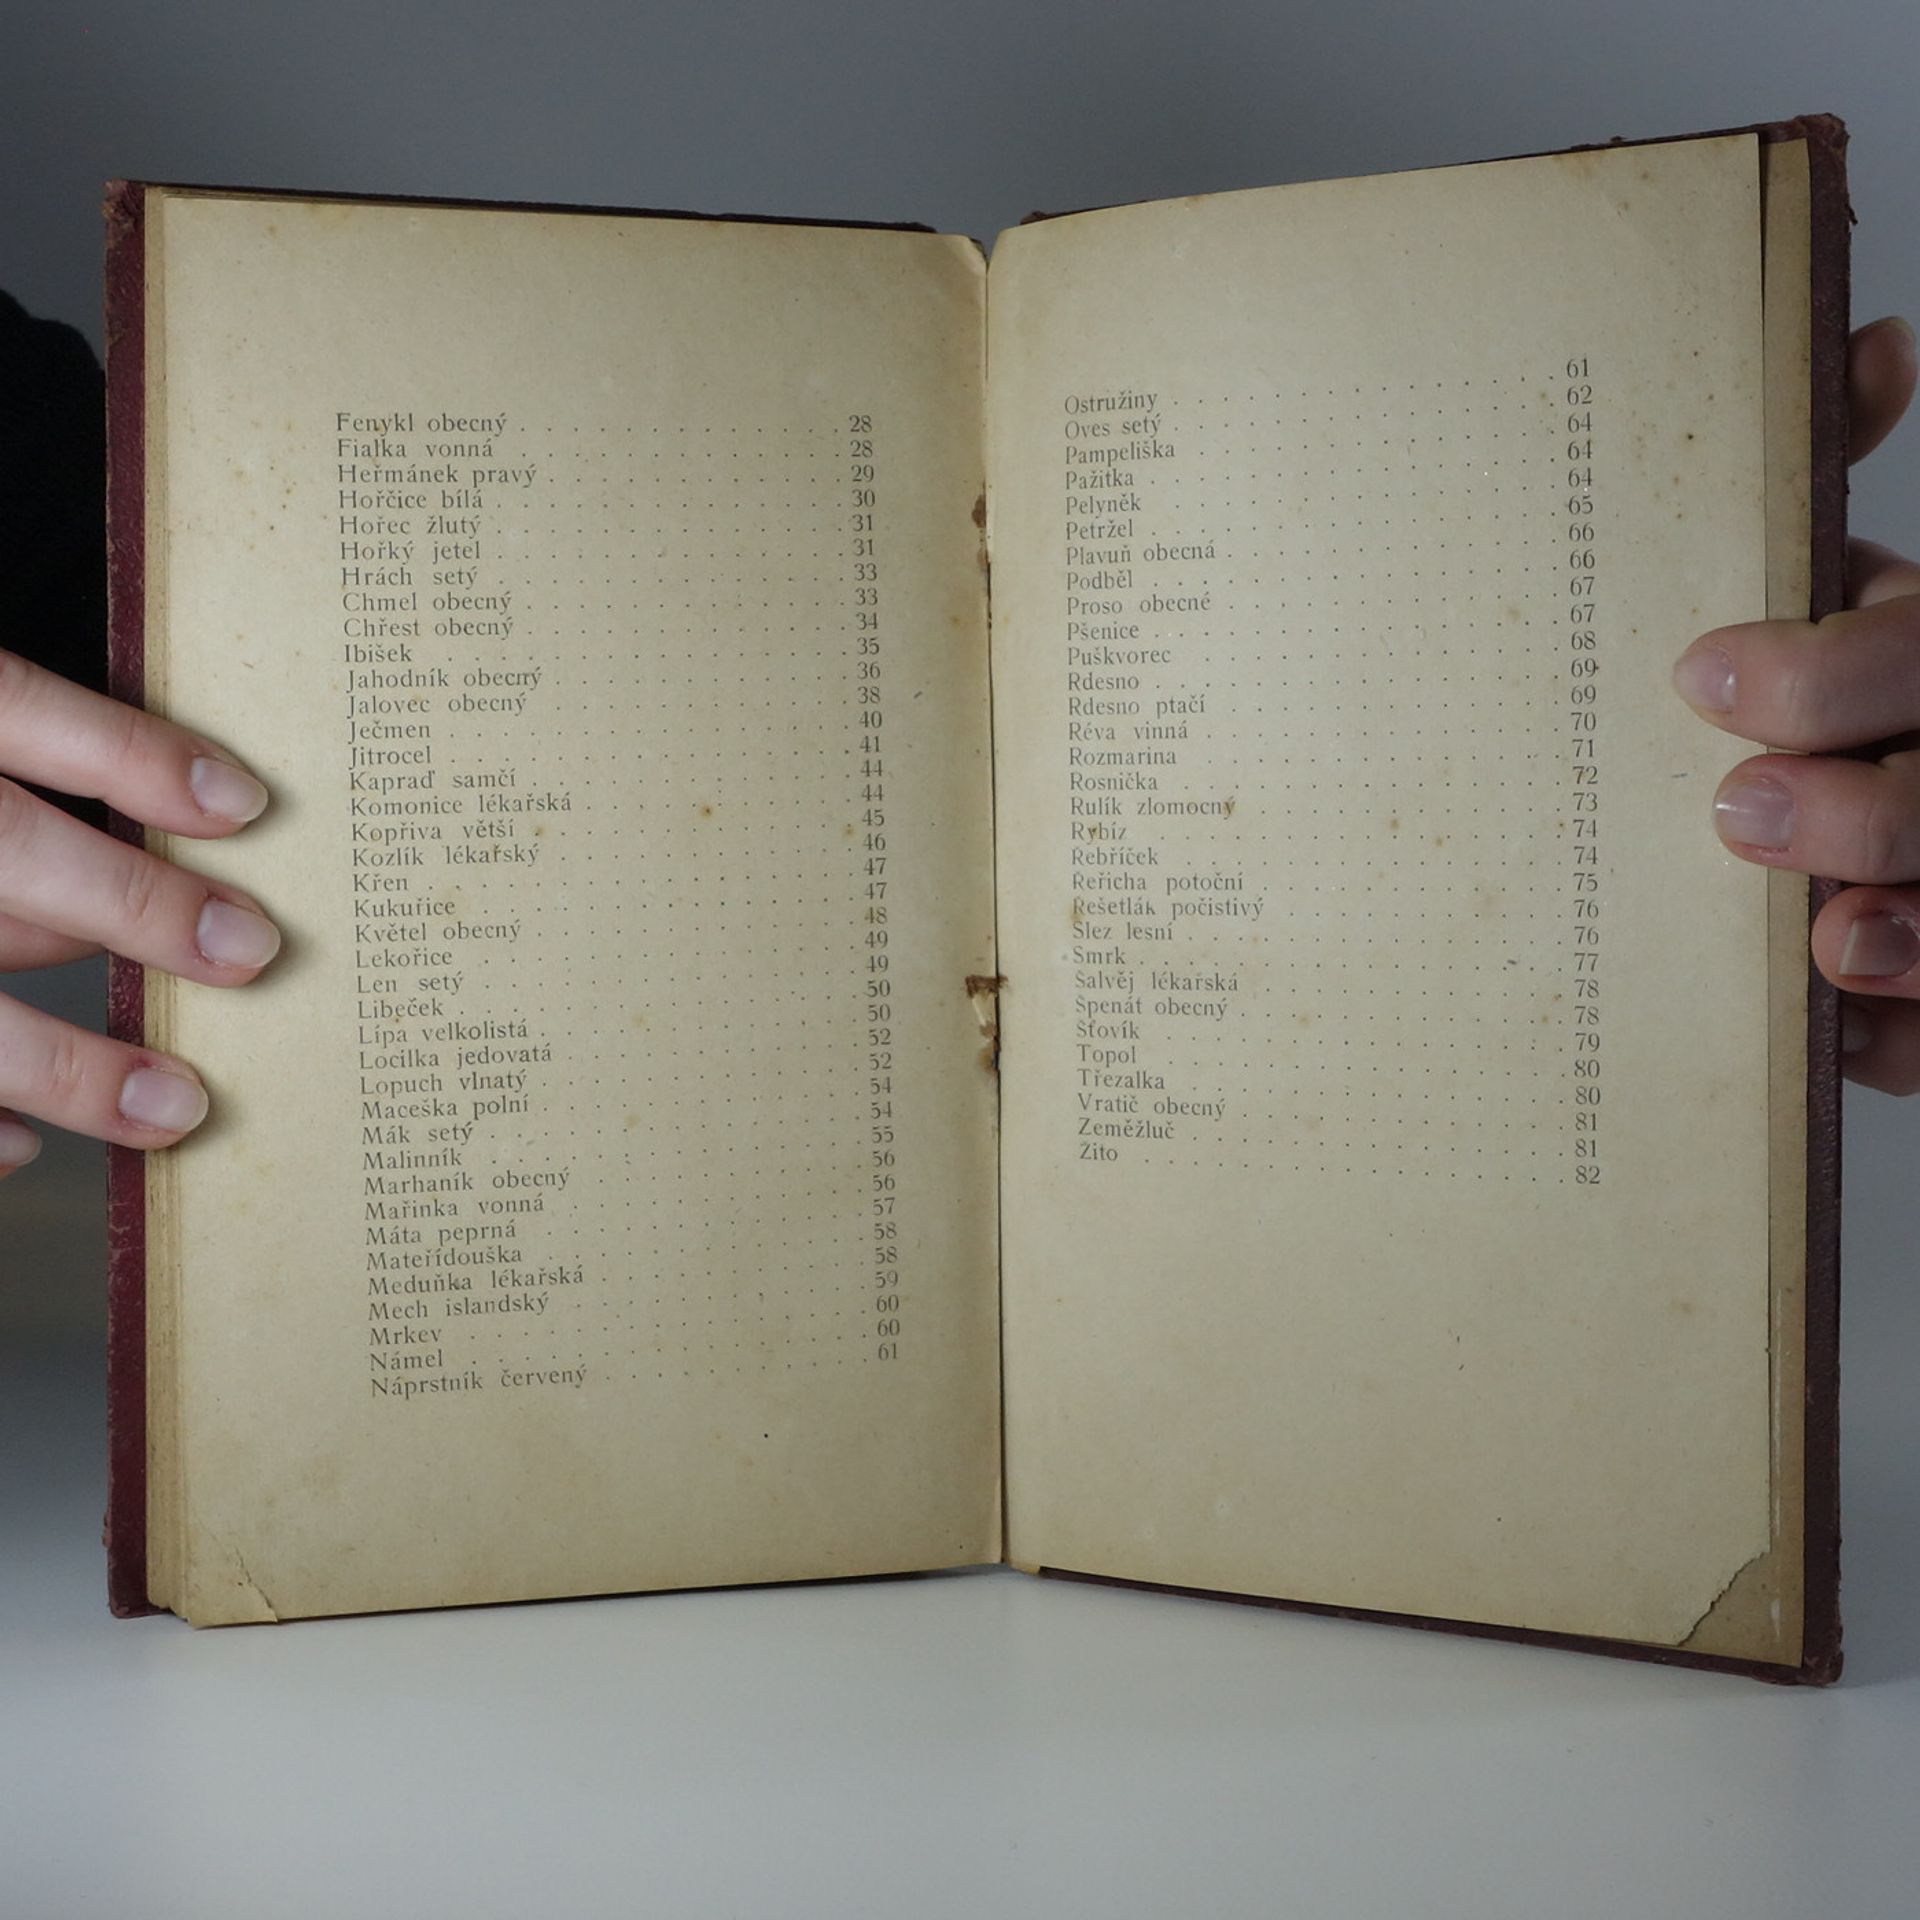 Fenykl obecný . . . . . . . . . . . . . 28
Fialka vonná . . . . . . . . . . . . . 28
Heřmánek pravý . . . . . . . . . . . . 29
Hořčice bílá . . . . . . . . . . . . . . 30
Hořec žlutý . . . . . . . . . . . . . . 31
Hořký jetel . . . . . . . . . . . . . . 31
Hrách setý . . . . . . . . . . . . . . 33
Chmel obecný . . . . . . . . . . . . . 33
Chřest obecný . . . . . . . . . . . . . 34
Ibišek . . . . . . . . . . . . . . . . 35
Jahodník obecný . . . . . . . . . . . . 36
Jalovec obecný . . . . . . . . . . . . 38
Ječmen . . . . . . . . . . . . . . . . 40
Jitrocel . . . . . . . . . . . . . . . . 41
Kapraď samčí . . . . . . . . . . . . . 44
Komonice lékařská . . . . . . . . . . . 44
Kopřiva větší . . . . . . . . . . . . . 45
Kozlík lékařský . . . . . . . . . . . . 46
Křen . . . . . . . . . . . . . . . . . 47
Kukuřice . . . . . . . . . . . . . . . 47
Květel obecný . . . . . . . . . . . . . 48
Lekořice . . . . . . . . . . . . . . . 49
Len setý . . . . . . . . . . . . . . . 49
Libeček . . . . . . . . . . . . . . . . 50
Lípa velkolistá . . . . . . . . . . . . . 50
Locilka jedovatá . . . . . . . . . . . . 52
Lopuch vlnatý . . . . . . . . . . . . . 52
Maceška polní . . . . . . . . . . . . . 54
Mák setý . . . . . . . . . . . . . . . 54
Malinník . . . . . . . . . . . . . . . 55
Marhaník obecný . . . . . . . . . . . 56
Mařinka vonná . . . . . . . . . . . . 56
Máta peprná . . . . . . . . . . . . . 57
Mateřídouška . . . . . . . . . . . . . 58
Meduňka lékařská . . . . . . . . . . . 58
Mech islandský . . . . . . . . . . . . 59
Mrkev . . . . . . . . . . . . . . . . 60
Námel . . . . . . . . . . . . . . . . 60
Náprstník červený . . . . . . . . . . . 61
Ostružiny . . . . . . . . . . . . . . . 61
Oves setý . . . . . . . . . . . . . . . 62
Pampeliška . . . . . . . . . . . . . . 64
Pažitka . . . . . . . . . . . . . . . . 64
Pelyněk . . . . . . . . . . . . . . . 64
Petržel . . . . . . . . . . . . . . . . 65
Plavuň obecná . . . . . . . . . . . . . 66
Podběl . . . . . . . . . . . . . . . . 66
Proso obecné . . . . . . . . . . . . . 67
Pšenice . . . . . . . . . . . . . . . . 67
Puškvorec . . . . . . . . . . . . . . 68
Rdesno . . . . . . . . . . . . . . . . 69
Rdesno ptačí . . . . . . . . . . . . . 69
Réva vinná . . . . . . . . . . . . . . 70
Rozmarina . . . . . . . . . . . . . . 71
Rosnička . . . . . . . . . . . . . . . 72
Rulík zlomocný . . . . . . . . . . . . 73
Rybíz . . . . . . . . . . . . . . . . 74
Řebříček . . . . . . . . . . . . . . . 74
Řeřicha potoční . . . . . . . . . . . . 75
Řešetlák počistivý . . . . . . . . . . . 76
Slez lesní . . . . . . . . . . . . . . . 76
Smrk . . . . . . . . . . . . . . . . . 77
Šalvěj lékařská . . . . . . . . . . . . 78
Špenát obecný . . . . . . . . . . . . . 78
Šťovík . . . . . . . . . . . . . . . . 79
Topol . . . . . . . . . . . . . . . . 80
Třezalka . . . . . . . . . . . . . . . 80
Vratič obecný . . . . . . . . . . . . . 81
Zeměžluč . . . . . . . . . . . . . . . 81
Žito . . . . . . . . . . . . . . . . . 82